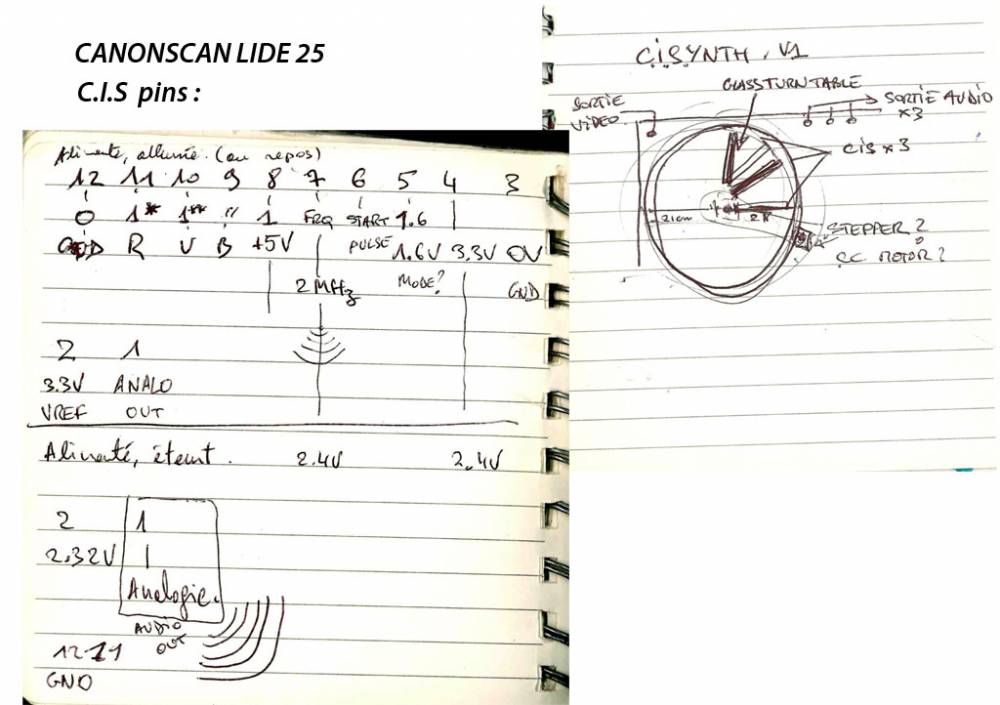 CANONSCAN LIDE 25
C.I.S pins :
Alimenté, allumé. (au repos)
12 11 10 9 8 7 6 5 4 3
0 1* 1** " 1 FRQ START 1.6
R V B +5V PULSE 1.6V 3.3V 0V
2 MHz MODE? GND
2 1
3.3V ANALO
VREF OUT
Alimenté, éteint. 2.4V 2.4V
2 1
2.32V |
Analogic.
AUDIO
OUT
12-11
GND
CISYNTH. V1
GLASS TURNTABLE
SORTIE
VIDEO
SORTIE AUDIO
x3
CIS x 3
21cm
STEPPER?
MOTOR?